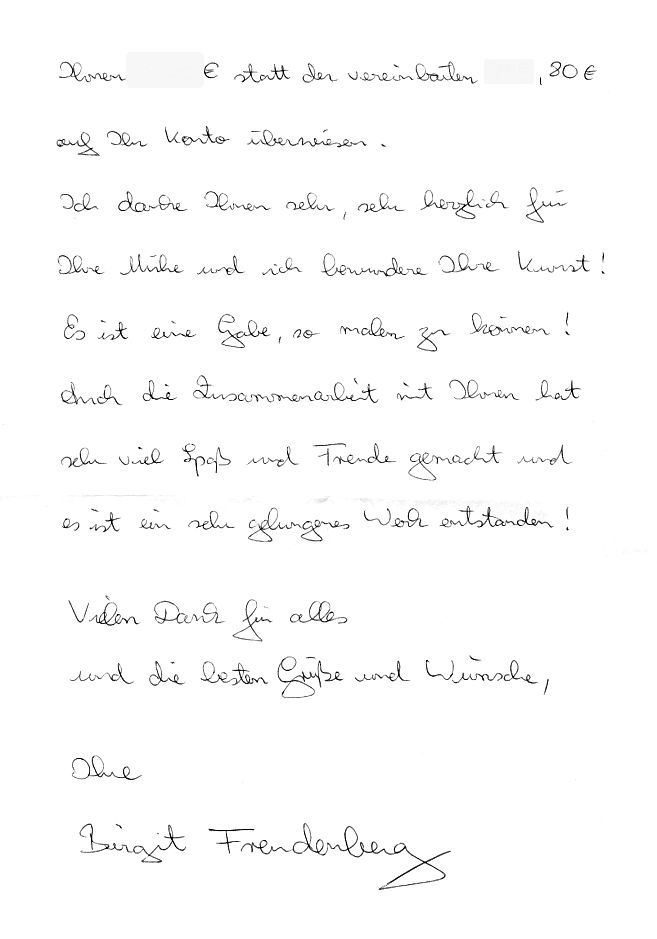 Ihnen € statt der vereinbarten ,80 €
auf Ihr Konto überwiesen.
Ich danke Ihnen sehr, sehr herzlich für
Ihre Mühe und ich bewundere Ihre Kunst!
Es ist eine Gabe, so malen zu können!
Auch die Zusammenarbeit mit Ihnen hat
sehr viel Spaß und Freude gemacht und
es ist ein sehr gelungenes Werk entstanden!
Vielen Dank für alles
und die besten Grüße und Wünsche,
Ihre
Birgit Freudenberg